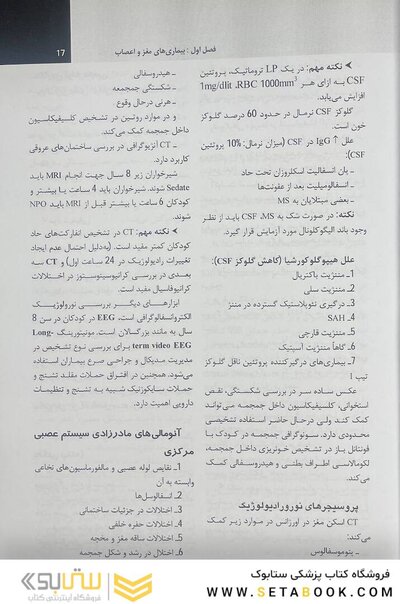 فصل اول : بیماری‌های مغز و اعصاب
17
➤ نکته مهم: در یک LP تروماتیک، پروتئین
CSF به ازای هر RBC 1000mm³، 1mg/dlit
افزایش می‌یابد.
گلوکز CSF نرمال در حدود 60 درصد گلوکز
خون است.
علل IgG↑ در CSF (میزان نرمال: 10% پروتئین
CSF):
ـ پان انسفالیت اسکلروزان تحت حاد
ـ انسفالومیلیت بعد از عفونت‌ها
ـ بعضی مبتلایان به MS
نکته: در صورت شک به MS، CSF باید از نظر
وجود باند الیگوکلونال مورد آزمایش قرار گیرد.
علل هیپوگلوکورشیا (کاهش گلوکز CSF):
1ـ مننژیت باکتریال
2ـ مننژیت سلی
3ـ درگیری نئوپلاستیک گسترده در مننژ
4ـ SAH
5ـ مننژیت قارچی
6ـ گاهاً مننژیت آسپتیک
7ـ بیماری‌های درگیرکننده پروتئین ناقل گلوکز
تیپ 1
عکس ساده سر در بررسی شکستگی، نقص
استخوانی، کلسیفیکاسیون داخل جمجمه می‌تواند
کمک کند ولی درحال حاضر استفاده تشخیصی
محدودی دارد. سونوگرافی جمجمه در کودک با
فونتانل باز در تشخیص خونریزی داخل جمجمه،
لکومالاسی اطراف بطنی و هیدروسفالی کمک
می‌کند.
پروسیجرهای نورورادیولوژیک
CT اسکن مغز در اورژانس در موارد زیر کمک
می‌کند:
ـ پنوموسفالوس
ـ هیدروسفالی
ـ شکستگی جمجمه
ـ هرنی درحال وقوع
و در موارد روتین در تشخیص کلسیفیکاسیون
داخل جمجمه کمک می‌کند.
ـ CT آنژیوگرافی در بررسی ساختمان‌های عروقی
کاربرد دارد.
شیرخواران زیر 8 سال جهت انجام MRI باید
Sedate شوند. شیرخواران باید 4 ساعت یا بیشتر و
کودکان 6 ساعت یا بیشتر قبل از MRI باید NPO
شوند.
➤ نکته مهم: CT در تشخیص انفارکت‌های حاد
کودکان کمتر مفید است. (به‌دلیل احتمال عدم ایجاد
تغییرات رادیولوژیک در 24 ساعت اول) و CT سه
بعدی در بررسی کرانیوسینوستوز در اختلالات
کرانیوفاسیال مفید است.
ابزارهای دیگر بررسی نورولوژیک
الکتروانسفالوگرافی است، EEG در کودکان در سن 8
سال به مانند بزرگسالان است. مونیتورینگ Long-
term video EEG برای بررسی نوع تشخیص در
مدیریت مدیکال و جراحی صرع بیماران استفاده
می‌شود. همچنین در افتراق حملات مقلد تشنج و
حملات سایکوژنیک شبیه به تشنج و تنظیمات
دارویی اهمیت دارد.
آنومالی‌های مادرزادی سیستم عصبی
مرکزی
1ـ نقایص لوله عصبی و مالفورماسیون‌های نخاعی
وابسته به آن
2ـ انسفالوسل‌ها
3ـ اختلالات در جزئیات ساختمانی
4ـ اختلالات حفره خلفی
5ـ اختلالات ساقه مغز و مخچه
6ـ اختلال در رشد و شکل جمجمه
فروشگاه کتاب پزشکی ستابوک
WWW.SETABOOK.COM
ستابوک
فروشگاه اینترنتی کتاب